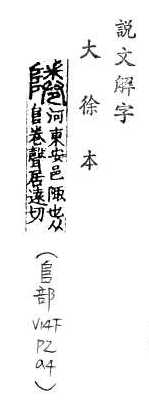 說文解字
大徐本
河東安邑陬也从
𨸏卷聲居遠切
(𨸏部 V14F P2 a4)